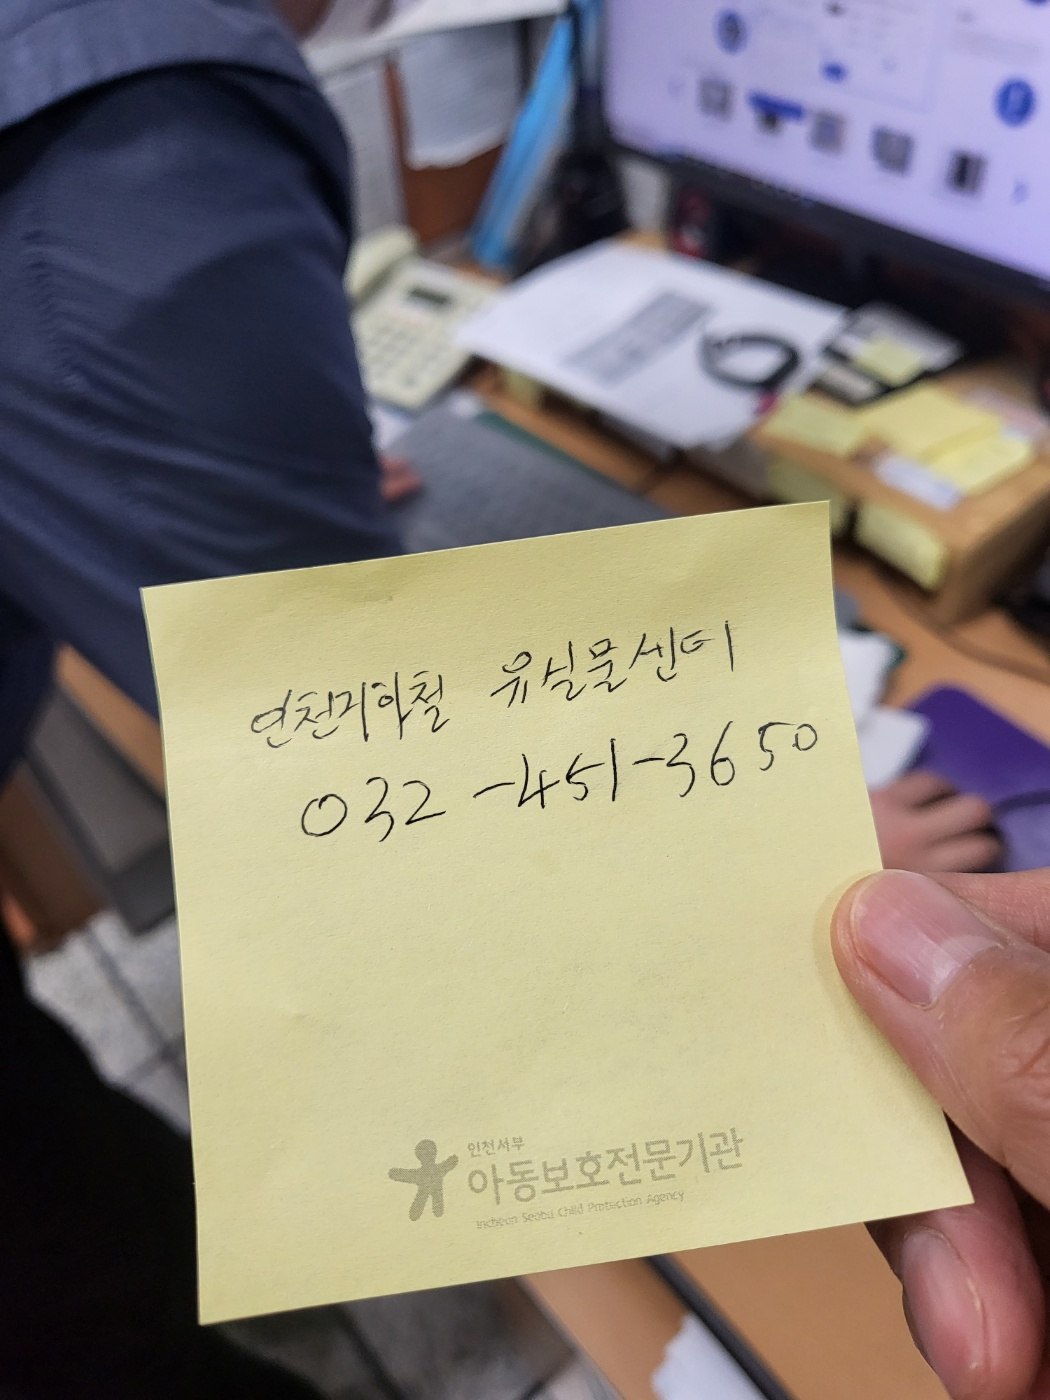 인천지하철 유실물센터
032-451-3650
인천서부
아동보호전문기관
Incheon Seobu Child Protection Agency